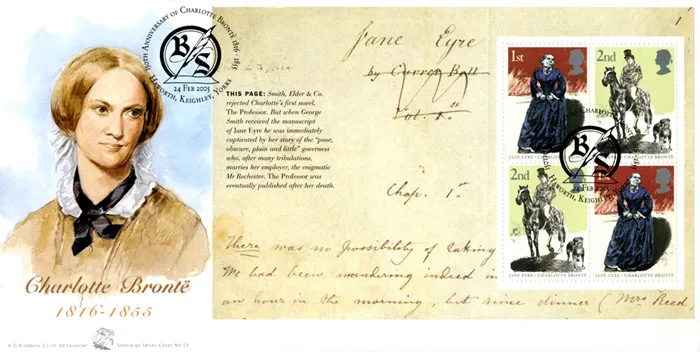 150TH ANNIVERSARY OF CHARLOTTE BRONTË 1816 - 1855
B S
24 FEB 2005
HAWORTH, KEIGHLEY, YORKS
Charlotte Brontë
1816-1855
A G Bradbury
Sovereign Series Cover No 57
THIS PAGE: Smith, Elder & Co.
rejected Charlotte's first novel,
The Professor. But when George
Smith received the manuscript
of Jane Eyre he was immediately
captivated by her story of the "poor,
obscure, plain and little" governess
who, after many tribulations,
marries her employer, the enigmatic
Mr Rochester. The Professor was
eventually published after her death.
1
Jane Eyre
by Currer Bell
Vol. 1.st
Chap. 1st
There was no possibility of taking
We had been wandering indeed in
an hour in the morning, but since dinner (Mrs Reed,
1st
JANE EYRE CHARLOTTE BRONTË
2nd
JANE EYRE CHARLOTTE BRONTË
2nd
JANE EYRE CHARLOTTE BRONTË
1st
JANE EYRE CHARLOTTE BRONTË
CHARLOTTE
24 FEB 2005
HAWORTH, KEIGHLEY, YORKS